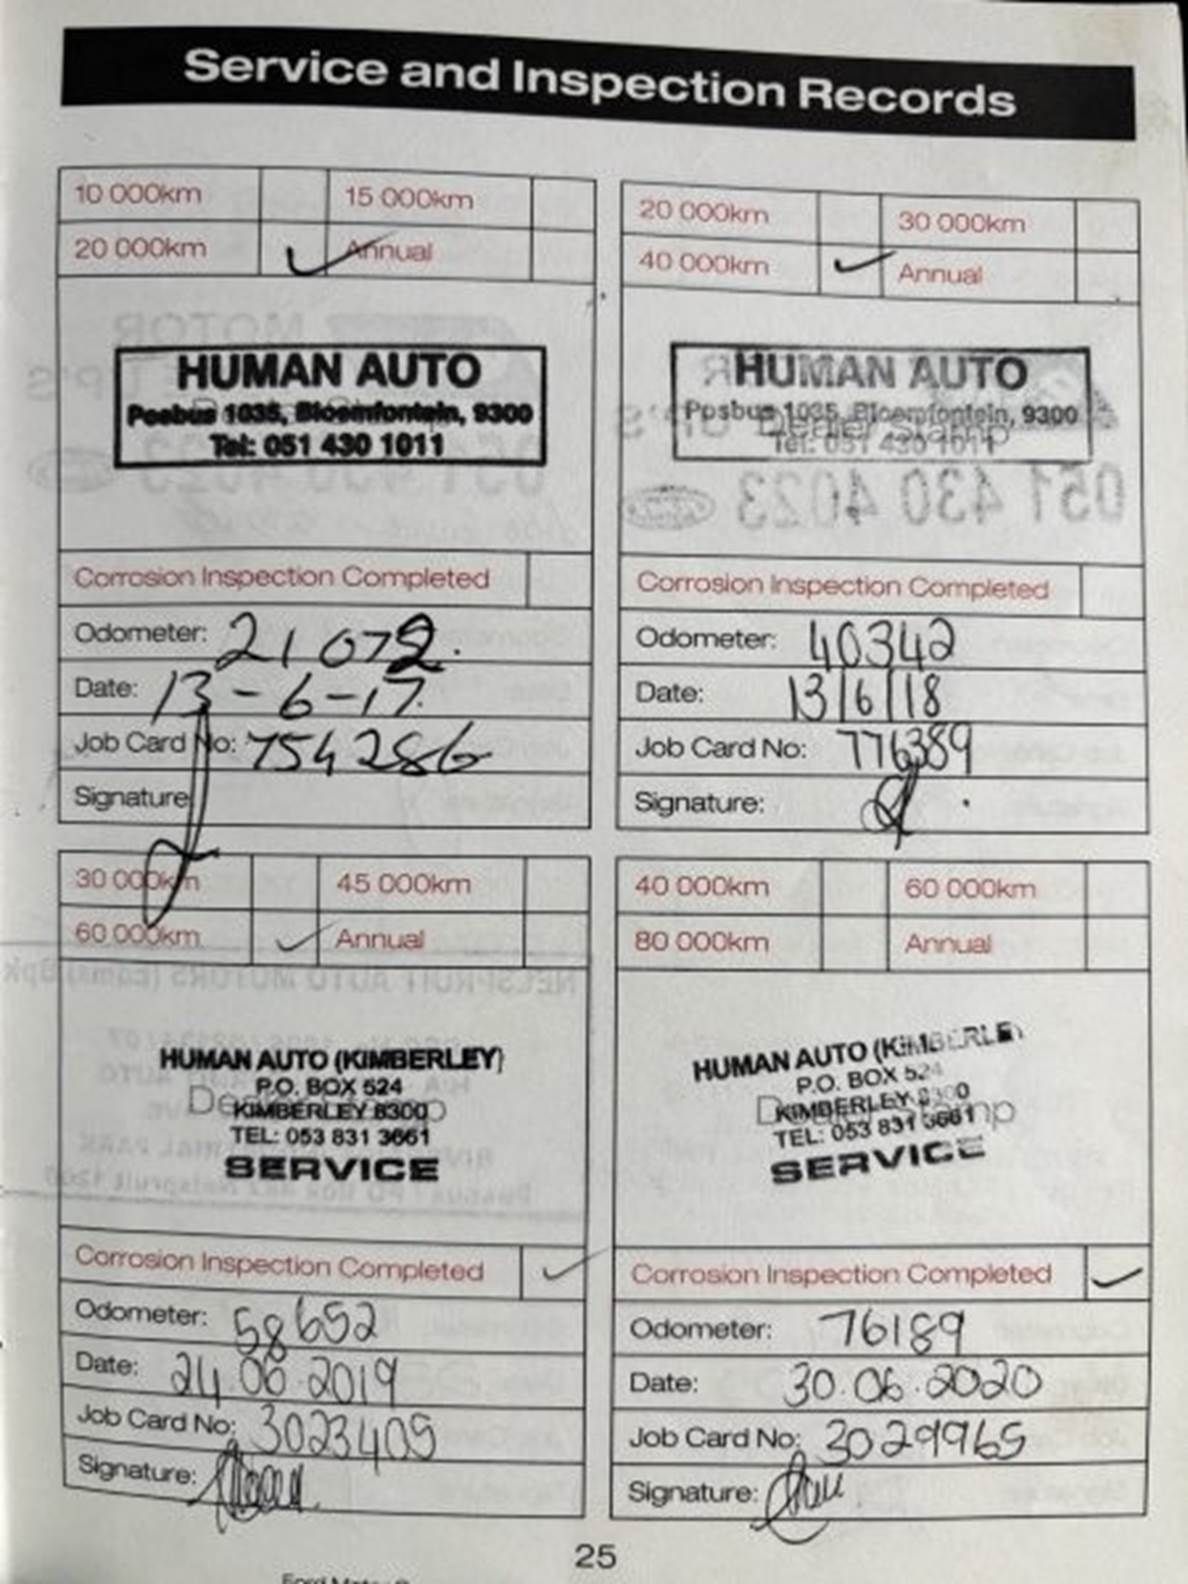 Service and Inspection Records
10 000km 15 000km
20 000km Annual
HUMAN AUTO
Posbus 1035, Bloemfontein, 9300
Tel: 051 430 1011
Corrosion Inspection Completed
Odometer: 21 072.
Date: 13-6-17.
Job Card No: 754286
Signature
20 000km 30 000km
40 000km Annual
HUMAN AUTO
Posbus 1035, Bloemfontein, 9300
Dealer Stamp
Tel: 051 430 1011
051 430 4023
Corrosion Inspection Completed
Odometer: 40342
Date: 13/6/18
Job Card No: 776389
Signature:
30 000km 45 000km
60 000km Annual
HUMAN AUTO (KIMBERLEY)
P.O. BOX 524
Dealer Stamp
KIMBERLEY 8300
TEL: 053 831 3661
SERVICE
Corrosion Inspection Completed
Odometer: 58652
Date: 24.06.2019
Job Card No: 3023405
Signature:
40 000km 60 000km
80 000km Annual
HUMAN AUTO (KIMBERLEY
P.O. BOX 524
KIMBERLEY 8300
Dealer Stamp
TEL: 053 831 3661
SERVICE
Corrosion Inspection Completed
Odometer: 76189
Date: 30.06.2020
Job Card No: 3029965
Signature:
25